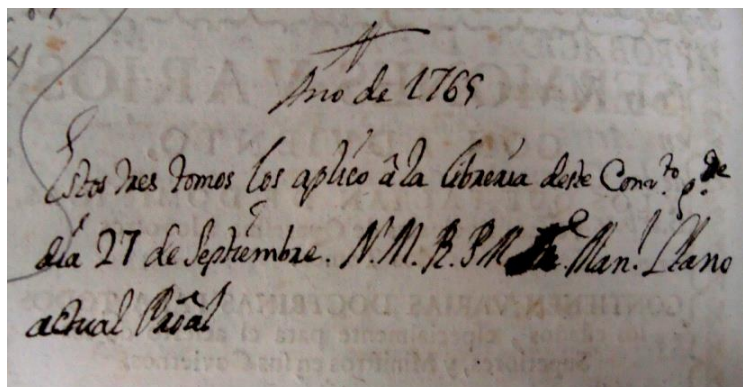 Año de 1765
Estos tres tomos los aplicó â la libreria deste Conv.to
dia 27 de Septiembre. N. M. R. P. M. Fr. Man.l Llano
actual Prãal